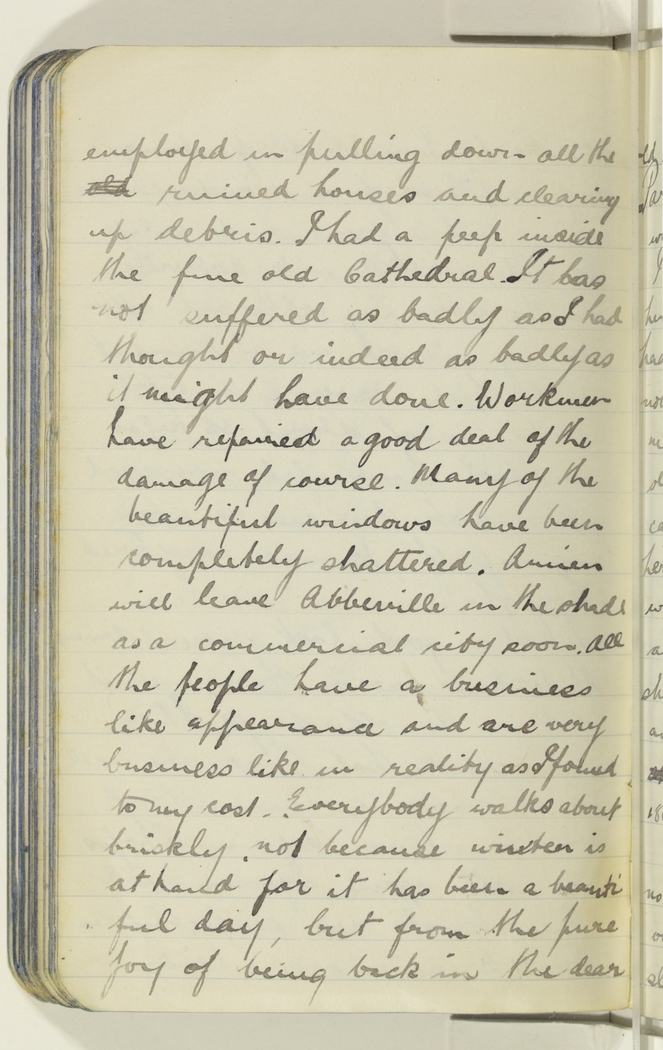 employed in pulling down all the
old ruined houses and clearing
up debris. I had a peep inside
the fine old Cathedral. It has
not suffered as badly as I had
thought or indeed as badly as
it might have done. Workmen
have repaired a good deal of the
damage of course. Many of the
beautiful windows have been
completely shattered. Amien
will leave Abberville in the shade
as a commercial city soon. All
the people have a business
like appearance and are very
business like in reality as I found
to my cost. Everybody walks about
briskly, not because winter is
at hand for it has been a beauti
ful day, but from the pure
joy of being back in the dear